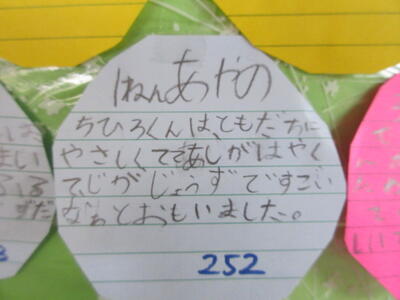 1ねんあやの
ちひろくんは、ともだちに
やさしくてあしがはやく
てじがじょうずですごい
なぁとおもいました。
252